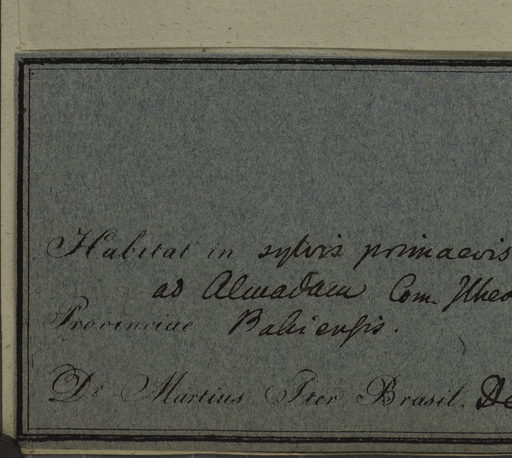 Habitat in sylvis primaevis
ad Almadam Com. Ilheo
Provinciae Bahiensis.
Dr. Martius Iter Brasil. De